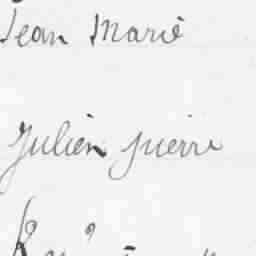 Jean Marie
Julien pierre